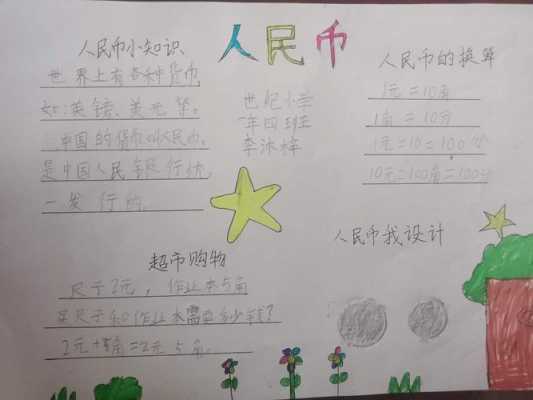 人民币
人民币小知识
世界上有各种货币
如:英镑、美元等。
中国的货币叫人民币,
是中国人民银行统
一发行的
世纪小学
一年四班
李沐梓
人民币的换算
1元=10角
1角=10分
1元=10=100分
10元=100角=100分
超市购物
尺子2元,作业本5角
买尺子和作业本需要多少钱?
2元+5角=2元5角
人民币我设计